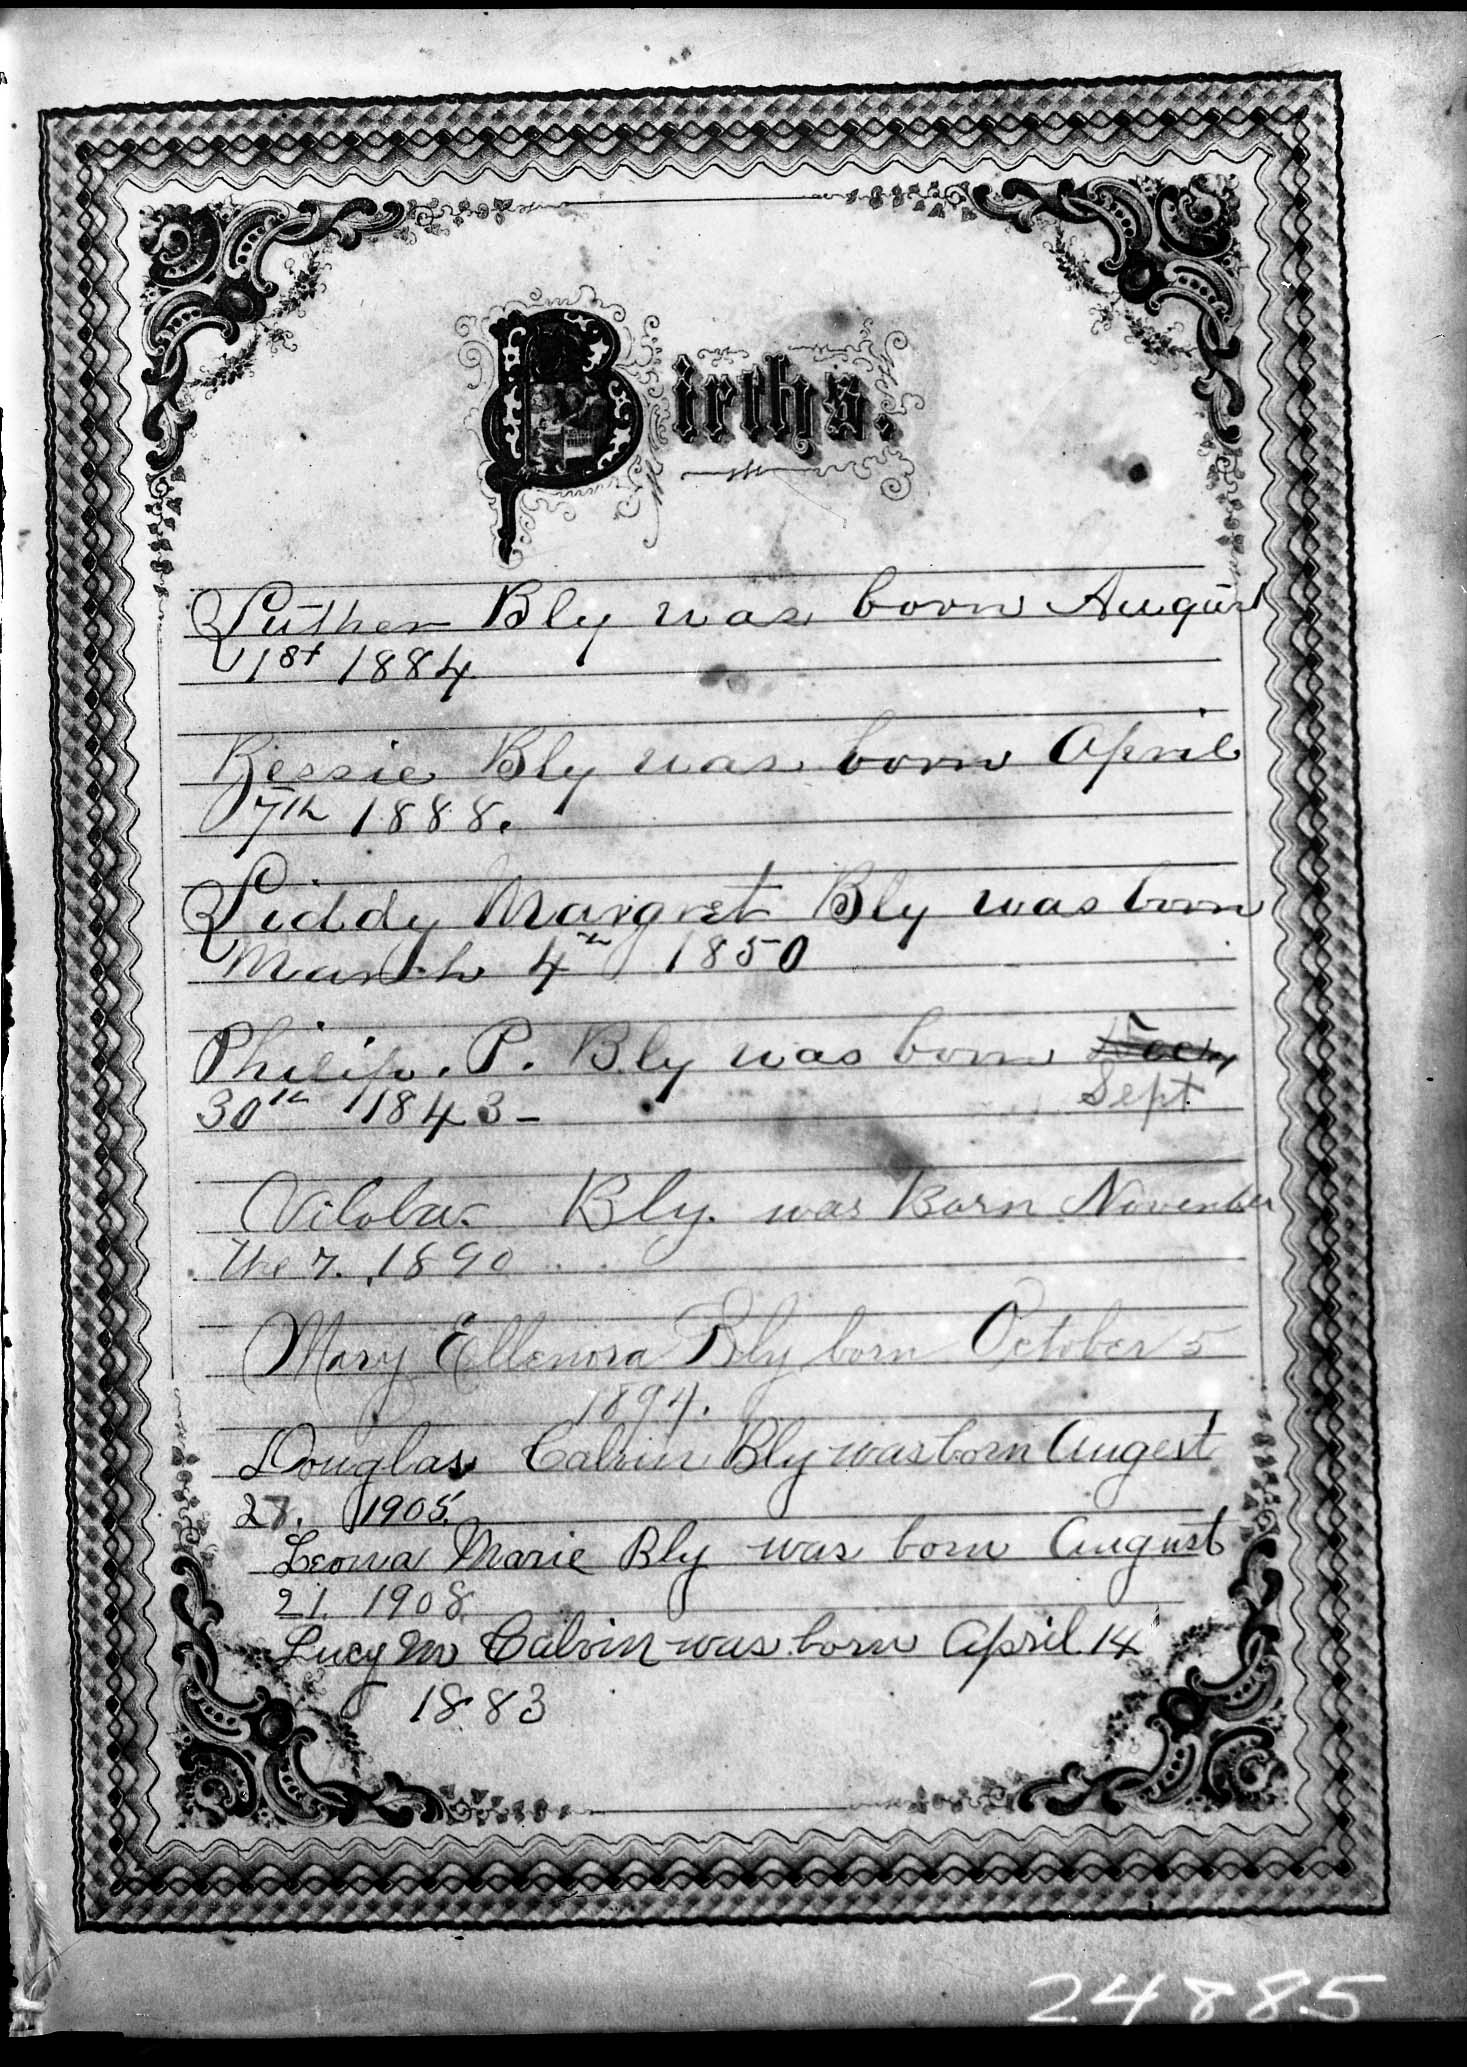 Births.
Luther Bly was born August
1st 1884
Bessie Bly was born April
7th 1888.
Liddy Margret Bly was born
March 4th 1850
Philip. P. Bly was born
Sept
30th 1843-
Bly. was Born November
the 7. 1890
Mary Ellenora Bly born October 5
1894.
Douglas Calvin Bly was born Augest
27. 1905.
Leona Marie Bly was born August
21. 1908.
Lucy M Calvin was born April 14
1883
24885